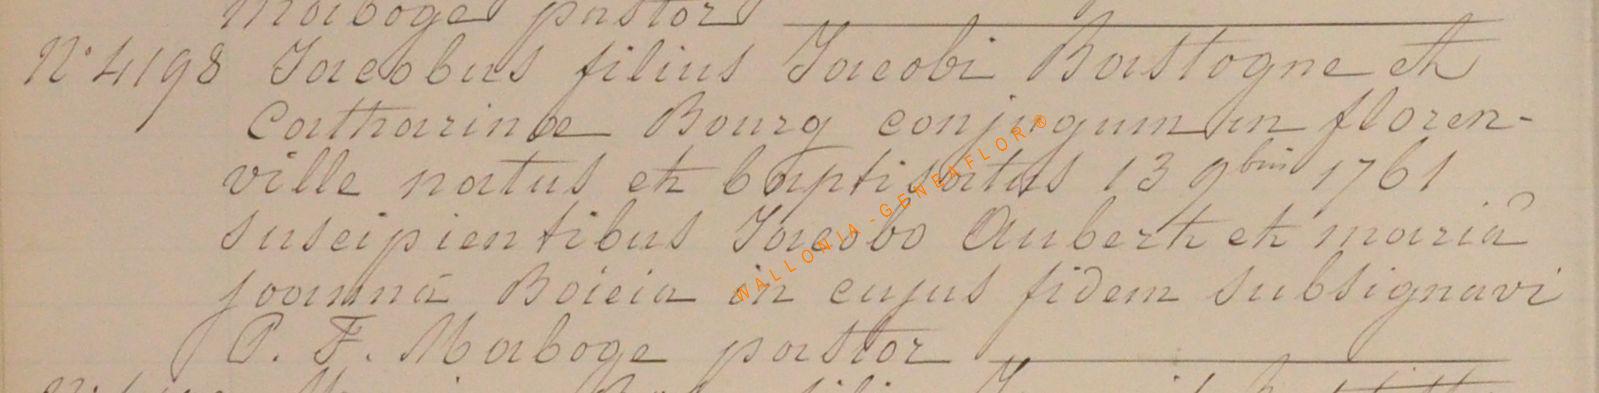 Maboge pastor
N° 4198 Jacobus filius Jacobi Bastogne et
Catharinæ Bourg conjugum in floren-
ville natus et baptisatus 13 9bris 1761
suscipientibus Jacobo Aubert et mariâ
joannâ Boicia in cujus fidem subsignavi
P. F. Maboge pastor
WALLONIA-GENEAFLOR®